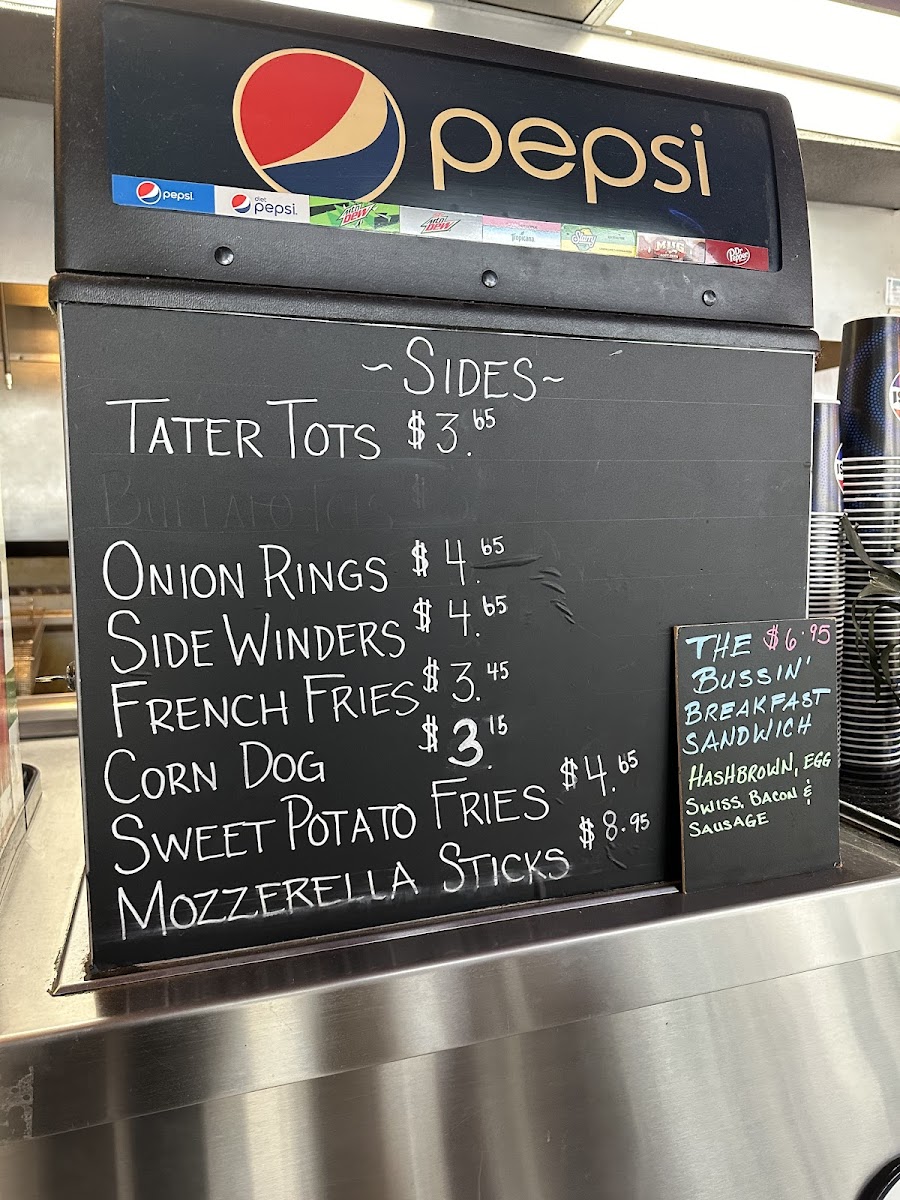 pepsi
pepsi
diet pepsi
mtn dew
mtn dew
Tropicana
Starry
MUG
Dr Pepper
~SIDES~
TATER TOTS $3.65
BUFFALO TOTS $
ONION RINGS $4.65
SIDE WINDERS $4.65
FRENCH FRIES $3.45
CORN DOG $3.15
SWEET POTATO FRIES $4.65
MOZZERELLA STICKS $8.95
THE $6.95
BUSSIN'
BREAKFAST
SANDWICH
HASHBROWN, EGG
SWISS, BACON &
SAUSAGE